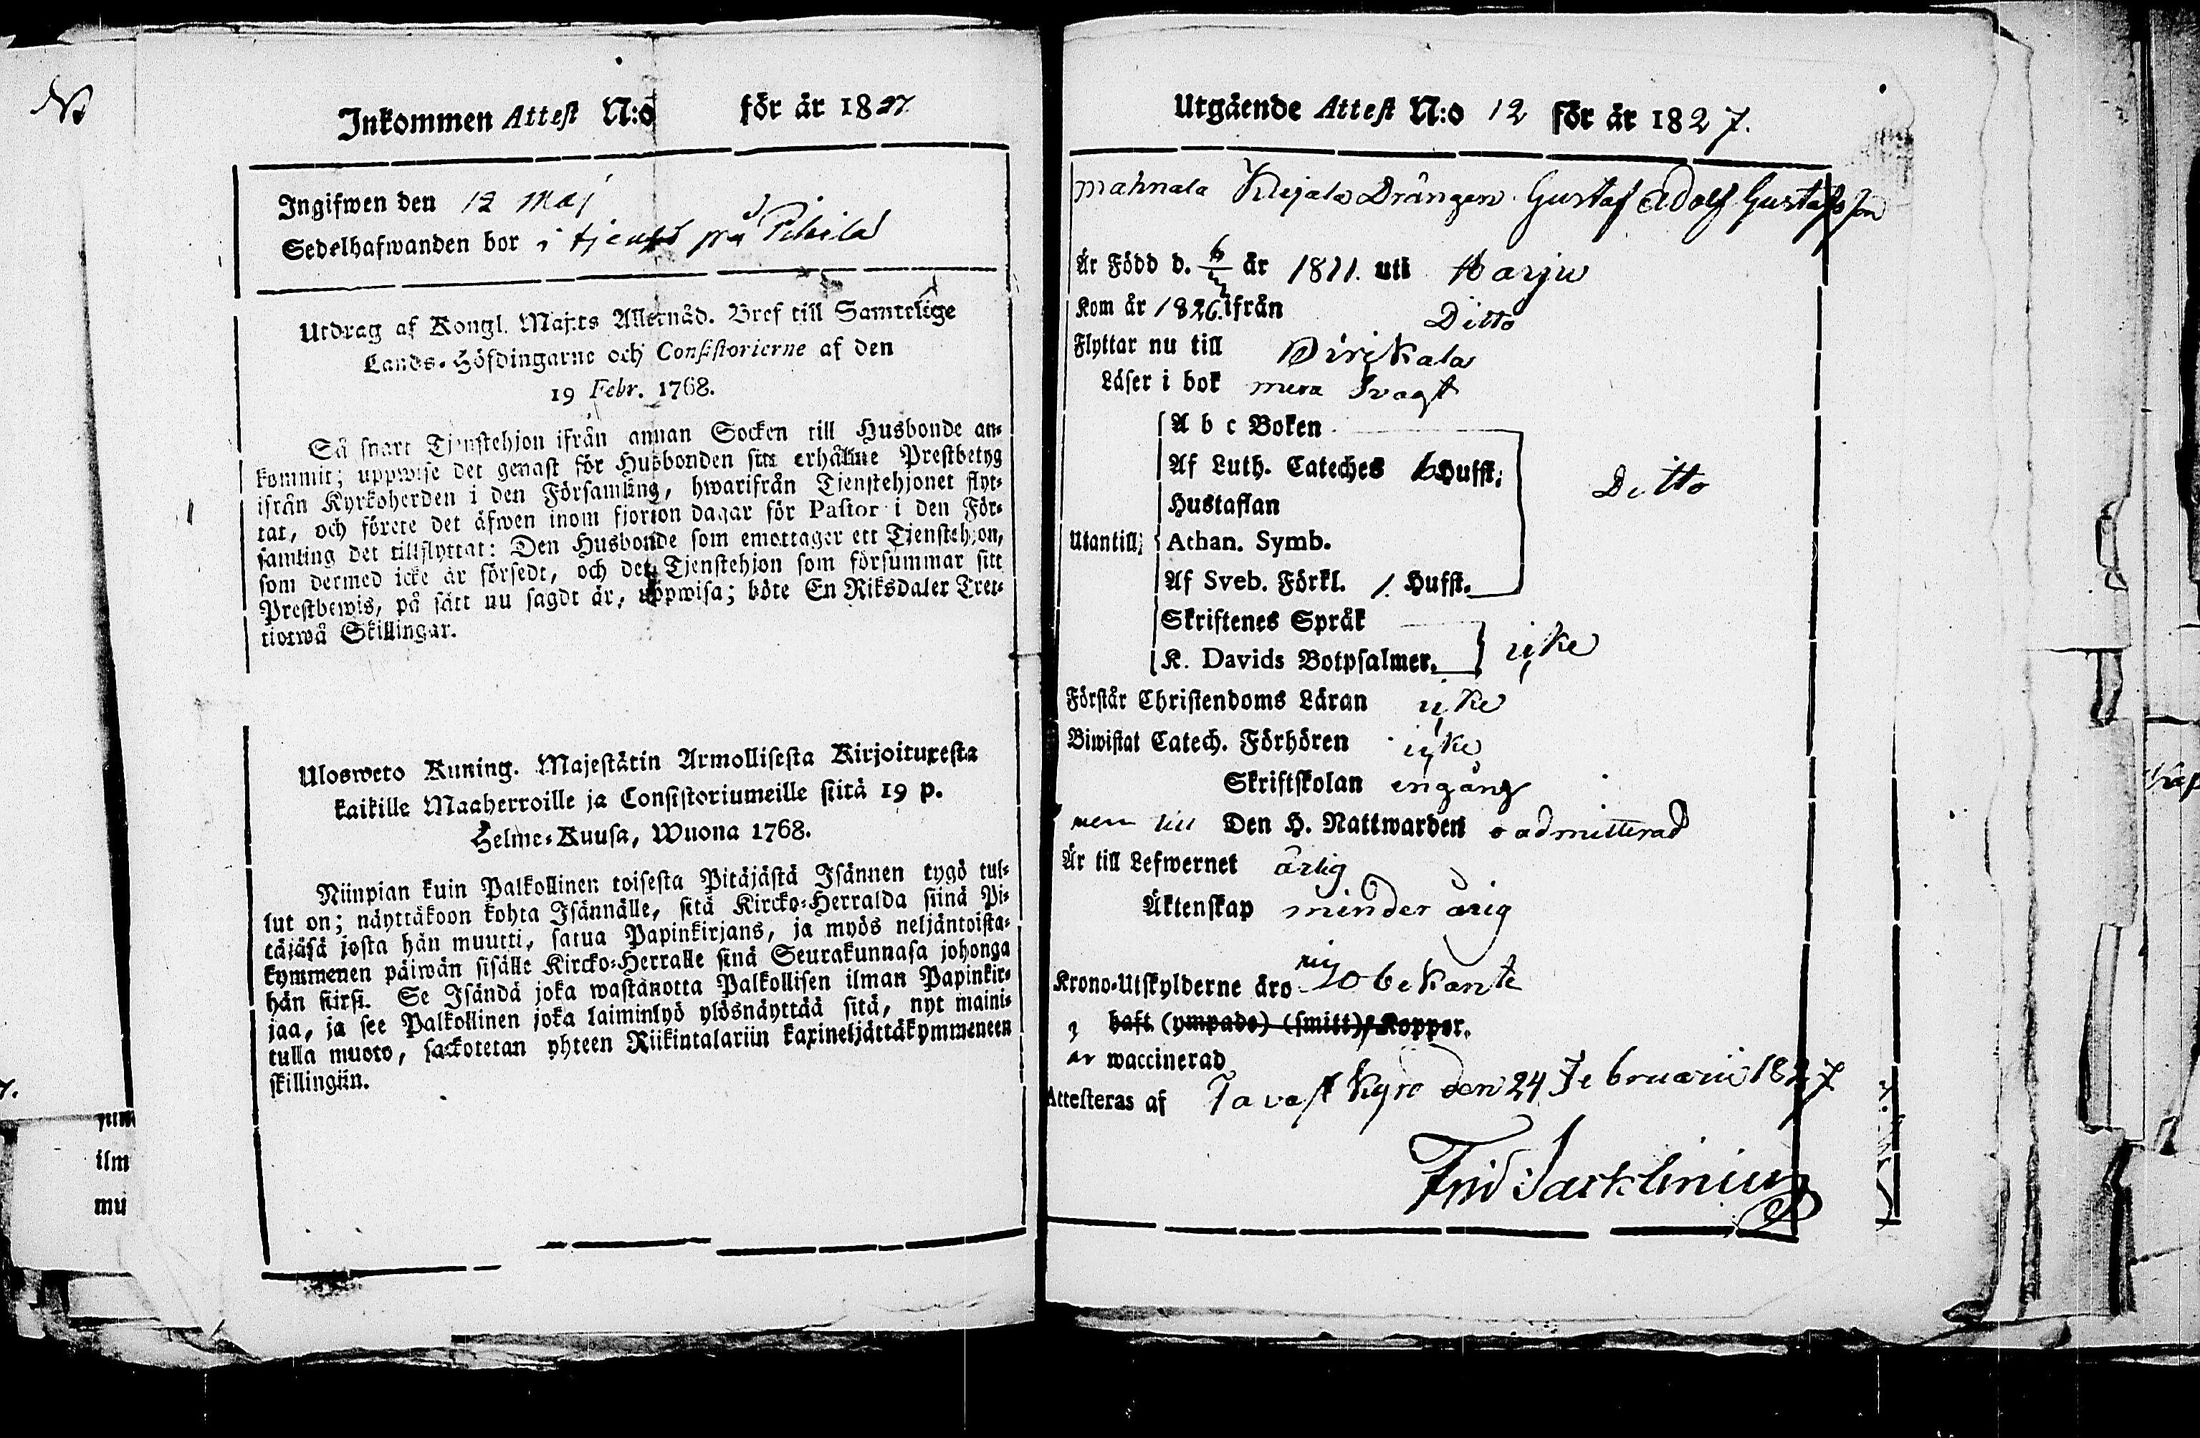 Inkommen Attest N:o för år 1827
Ingifwen den 12 Maj
Sedelhafwanden bor i tjenst på Pihila
Utdrag af Kongl. Maj:ts Allernåd. Bref till Samtelige
Lands-Höfdingarne och Consistorierne af den
19 Febr. 1768.
Så snart Tjenstehjon ifrån annan Socken till Husbonde an-
kommit; uppwise det genast för Husbonden sitt erhållne Prestbetyg
ifrån Kyrkoherden i den Församling, hwarifrån Tienstehjonet flyt-
tat, och förete det äfwen inom fjorton dagar för Pastor i den För-
samling det tillflyttat: Den Husbonde som emottager ett Tienstehjon,
som dermed icke är försedt, och det Tjenstehjon som försummar sitt
Prestbewis, på sätt nu sagdt är, uppwisa; böte En Riksdaler Tret-
tiotwå Skillingar.
Ulosweto Kuning. Majestätin Armollisesta Kirjoituxesta
kaikille Maaherroille ja Consistoriumeille siitä 19 p.
Helme-Kuusa, Wuona 1768.
Niinpian kuin Palkollinen toisesta Pitäjästä Isännen tygö tul-
lut on; näyttäkoon kohta Isännälle, sitä Kircko-Herralda siinä Pi-
täjäsä josta hän muutti, saatua Papinkirjans, ja myös neljäntoista-
kymmenen päiwän sisälle Kircko-Herralle sinä Seurakunnasa johonga
hän siirsi. Se Isändä joka wastanotta Palkollisen ilman Papinkir-
jaa, ja see Palkollinen joka laiminlyö ylösnäyttää sitä, nyt maini-
tulla muoto, sackotetan yhteen Riikintalariin kaxineljättäkymmeneen
skillingiin.
Utgående Attest N:o 12 för år 1827.
Mahnala Klejala Drängen Gustaf Adolf Gustafsson
Är Född d. 6/ år 1811. uti Harju
Kom år 1826. ifrån Ditto
Flyttar nu till Birkala
Läser i bok mera svagt
A b c Boken
Af Luth. Cateches 6 Hufst.
Hustaflan Ditto
Utantill; Athan. Symb.
Af Sveb. Förkl. 1. Hufst.
Skriftenes Språk
K. Davids Botpsalmer. icke
Förstår Christendoms Läran icke
Biwistat Catech. Förhören icke
Skriftskolan engång
men till Den H. Nattwarden oadmitterad
Är till Lefwernet ärlig
Äktenskap minderårig
Krono-Utskylderne äro mig obekante
haft (ympade) (smitt) Koppor.
är waccinerad
Attesteras af Tavastkyro den 24 Februarii 1827